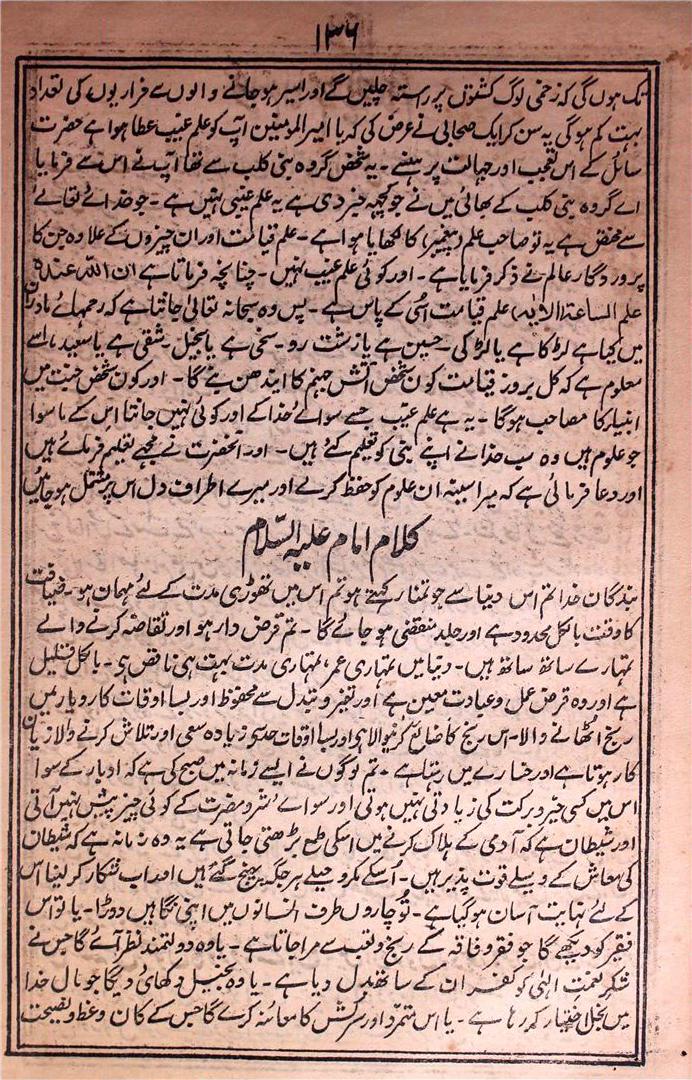 ۱۳۶
تک ہوں گی کہ زخمی لوگ کشتوں پر راستہ چلیں گے اور اسیر ہو جانے والوں سے فراریوں کی تعداد
بہت کم ہوگی یہ سن کر ایک صحابی نے عرض کی کہ یا امیر المومنین آپ کو علم غیب عطا ہوا ہے حضرت
سائل کے اس تعجب اور جہالت پر ہنسے ۔ یہ شخص گروہ بنی کلب سے تھا آپ نے اس سے فرمایا
اے گروہ بنی کلب کے بھائی میں نے جو کچھ خبر دی ہے یہ علم غیبی نہیں ہے ۔ جو خدائے تعالےٰ
سے مختص ہے یہ تو صاحب علم (پیغمبر) کا سکھایا ہوا ہے ۔ علم قیامت اور ان چیزوں کے علاوہ جن کا
پروردگار عالم نے ذکر فرمایا ہے ۔ اور کوئی علم غیب نہیں ۔ چنانچہ فرماتا ہے ان اللّٰہ عندہٗ
علم الساعۃ (الآیہ) علم قیامت اسی کے پاس ہے ۔ پس وہ سبحانہ تعالیٰ جانتا ہے کہ رحمہائے مادران
میں کیا ہے لڑکا ہے یا لڑکی ۔ حسین ہے یا زشت رو ۔ سخی ہے یا بخیل ۔ شقی ہے یا سعید ، اسے
معلوم ہے کہ کل بروز قیامت کون شخص آتش جہنم کا ایندھن بنے گا ۔ اور کون شخص جنت میں
انبیاء کا مصاحب ہوگا ۔ یہ ہے علم غیب جسے سوائے خدا کے اور کوئی نہیں جانتا اس کے ماسوا
جو علوم ہیں وہ سب خدا نے اپنے نبی کو تعلیم کئے ہیں ۔ اور آنحضرت نے مجھے تعلیم فرمائے ہیں
اور دعا فرمائی ہے کہ میرا سینہ ان علوم کو حفظ کرلے اور میرے اطراف دل اس پر مشتمل ہوجائیں
کلام امام علیہ السّلام
بندگان خدا تم اس دنیا سے جو تمنا رکھتے ہو تم اس میں تھوڑی مدت کے لئے مہمان ہو ۔ ضیافت
کا وقت بالکل محدود ہے اور جلد منقضی ہو جائے گا ۔ تم قرض دار ہو اور تقاضہ کرنے والے
تمہارے ساتھ ساتھ ہیں ۔ دنیا میں تمہاری عمر، تمہاری مدت بہت ہی ناقص ہی ۔ بالکل قلیل
ہے اور وہ قرض عمل و عبادت معین ہے اور تغیر و تبدل سے محفوظ اور بسا اوقات کاروبار میں
رنج اٹھانے والا۔ اس رنج کا ضائع کرنیوالا ہی اور بسا اوقات حد سے زیادہ سعی اور تلاش کرنے والا زیان
کار ہوتا ہے اور خسارے میں رہتا ہے ۔ تم لوگوں نے ایسے زمانہ میں صبح کی ہے کہ ادبار کے سوا
اس میں کسی خیر و برکت کی زیادتی نہیں ہوتی اور سوائے شر و مضرت کے کوئی چیز پیش نہیں آتی
اور شیطان ہے کہ آدمی کے ہلاک کرنے میں اسکی طمع بڑھتی جاتی ہے یہ وہ زمانہ ہے کہ شیطان
کی معاش کے وسیلے قوت پذیر ہیں ۔ اُسکے مکر و حیلے ہر جگہ پہنچ گئے ہیں اور اب شکار کر لینا اس
کے لئے نہایت آسان ہوگیا ہے ۔ تُو چاروں طرف انسانوں میں اپنی نگاہیں دوڑا ۔ یا تو اس
فقیر کو دیکھے گا جو فقر و فاقہ کے رنج و تعب سے مرا جاتا ہے ۔ یا وہ دولتمند نظر آئے گا جس نے
شکر نعمت الٰہی کو کفران کے ساتھ بدل دیا ہے ۔ یا وہ بخیل دکھائی دیگا جو مال خدا
میں بخل اختیار کر رہا ہے ۔ یا اس متمرّد اور سرکش کا معائنہ کرے گا جس کے کان وعظ و نصیحت